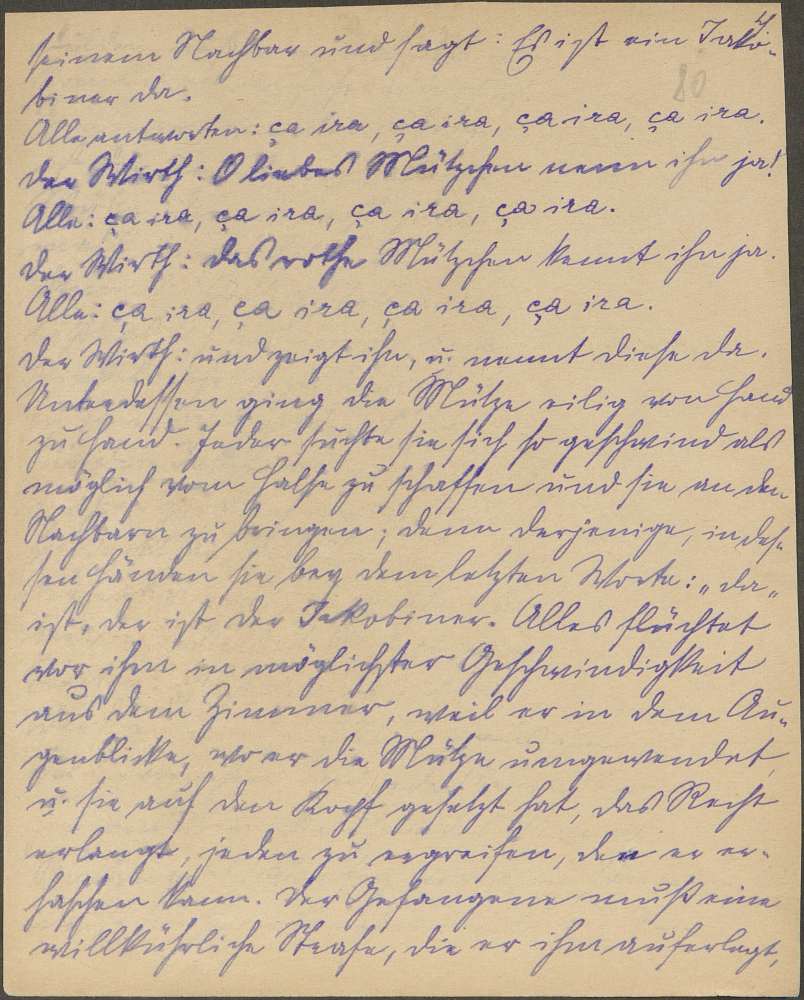 4
80
seinem Nachbar und sagt: Es ist ein Jako-
biner da.
Alle antworten: ça ira, ça ira, ça ira, ça ira.
Der Wirth: O liebes Mützchen nenn ihn ja!
Alle: ça ira, ça ira, ça ira, ça ira.
Der Wirth: das rothe Mützchen kennt ihn ja.
Alle: ça ira, ça ira, ça ira, ça ira.
Der Wirth: und zeigt ihn, u. nennt diese da.
Unterdessen ging die Mütze eilig von Hand
zu Hand. Jeder suchte sie sich so geschwind als
möglich vom Halse zu schaffen und sie an den
Nachbarn zu bringen; denn derjenige, in des-
sen Händen sie bey dem letzten Worte: „da„
ist, der ist der Jakobiner. Alles flüchtet
vor ihm in möglichster Geschwindigkeit
aus dem Zimmer, weil er in dem Au-
genblicke, wo er die Mütze umgewendet,
u. sie auf den Kopf gesetzt hat, das Recht
erlangt, jeden zu ergreifen, den er er-
haschen kann. Der Gefangene muß eine
willkührliche Strafe, die er ihm auferlegt,